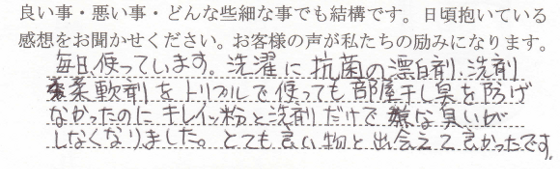 良い事・悪い事・どんな些細な事でも結構です。日頃抱いている
感想をお聞かせください。お客様の声が私たちの励みになります。
毎日使っています。洗濯に抗菌の漂白剤・洗剤
柔軟剤をトリプルで使っても部屋干し臭を防げ
なかったのにキレイッ粉と洗剤だけで嫌な臭いが
しなくなりました。とても良い物と出会えて良かったです。